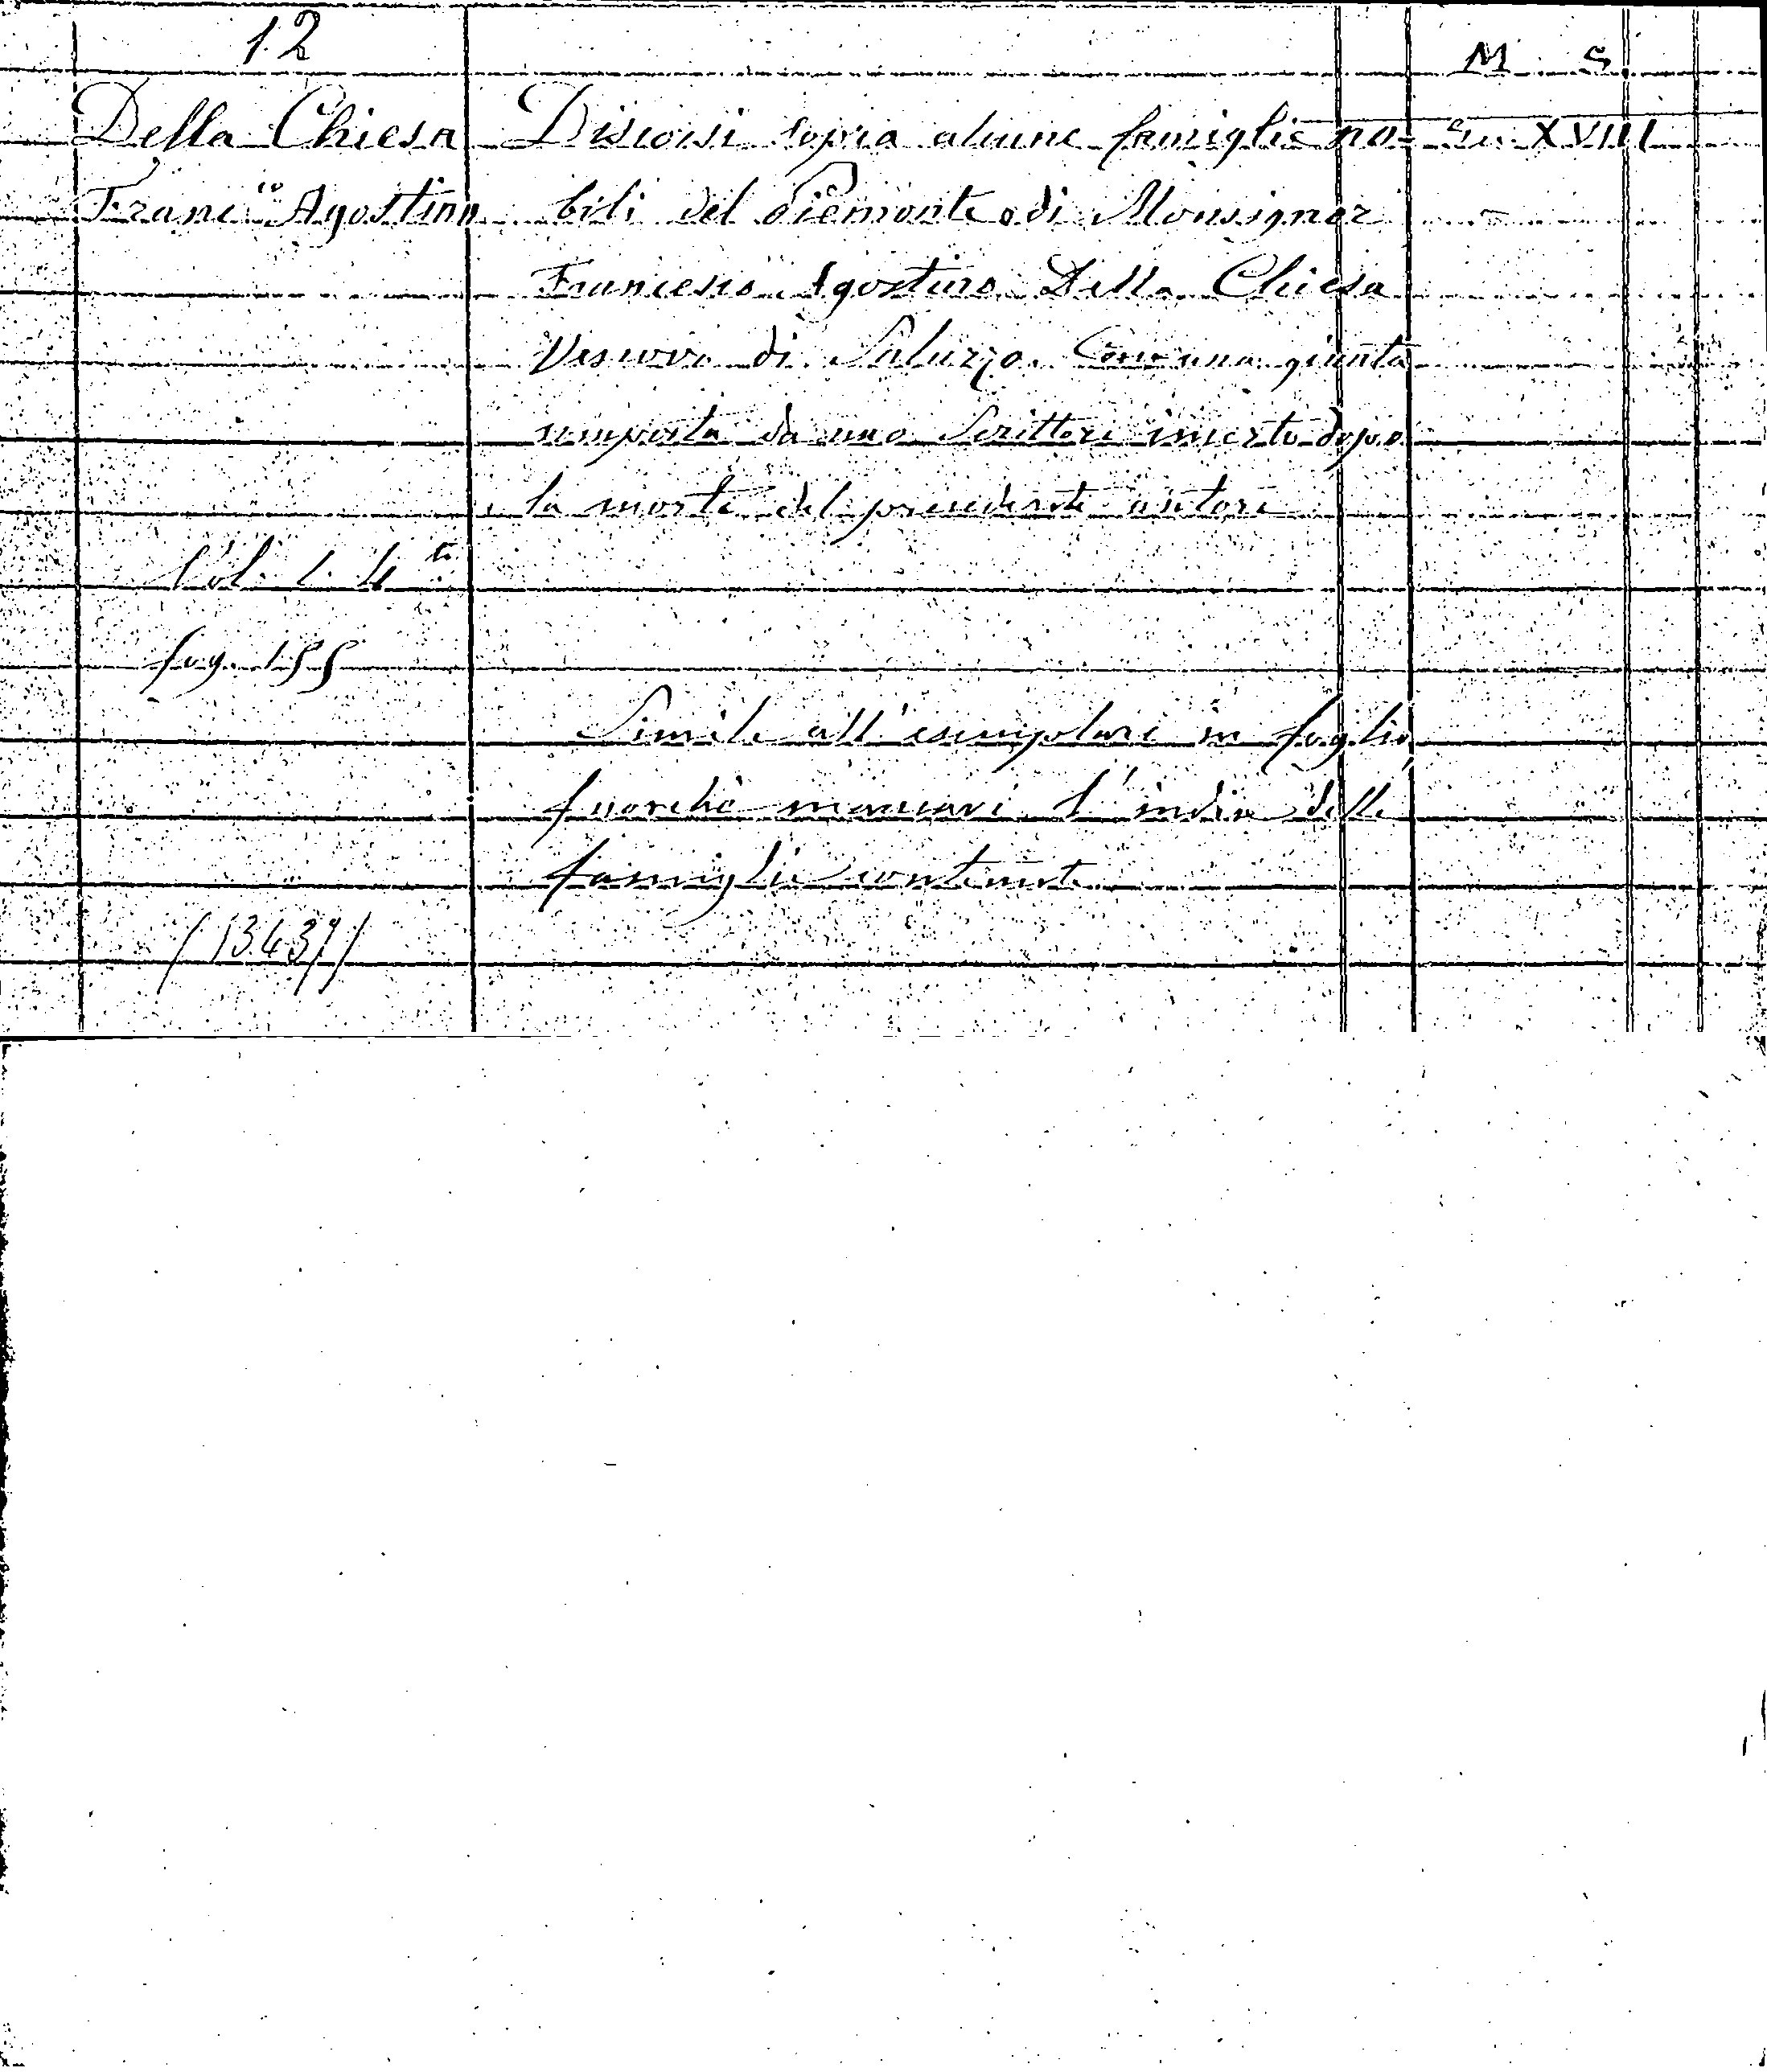 12
M S
Della Chiesa Discorsi sopra alcune famiglie no- Sec. XVIII
Franc.co Agostino bili del Piemonte di Monsignor
Francesco Agostino Della Chiesa
Vescovo di Saluzzo. Con una giunta
composta da uno Scrittore incerto dopo
la morte del precedente autore
Vol. 1. 4to
fog. 155
Simile all'esemplare in foglio,
fuorchè mancare l'indice delle
famiglie contenute
(13437)